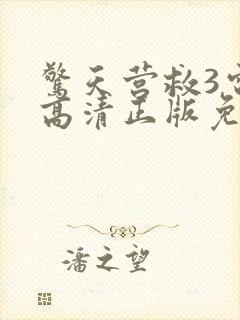 驚天营救3
高清正版免
潘之望